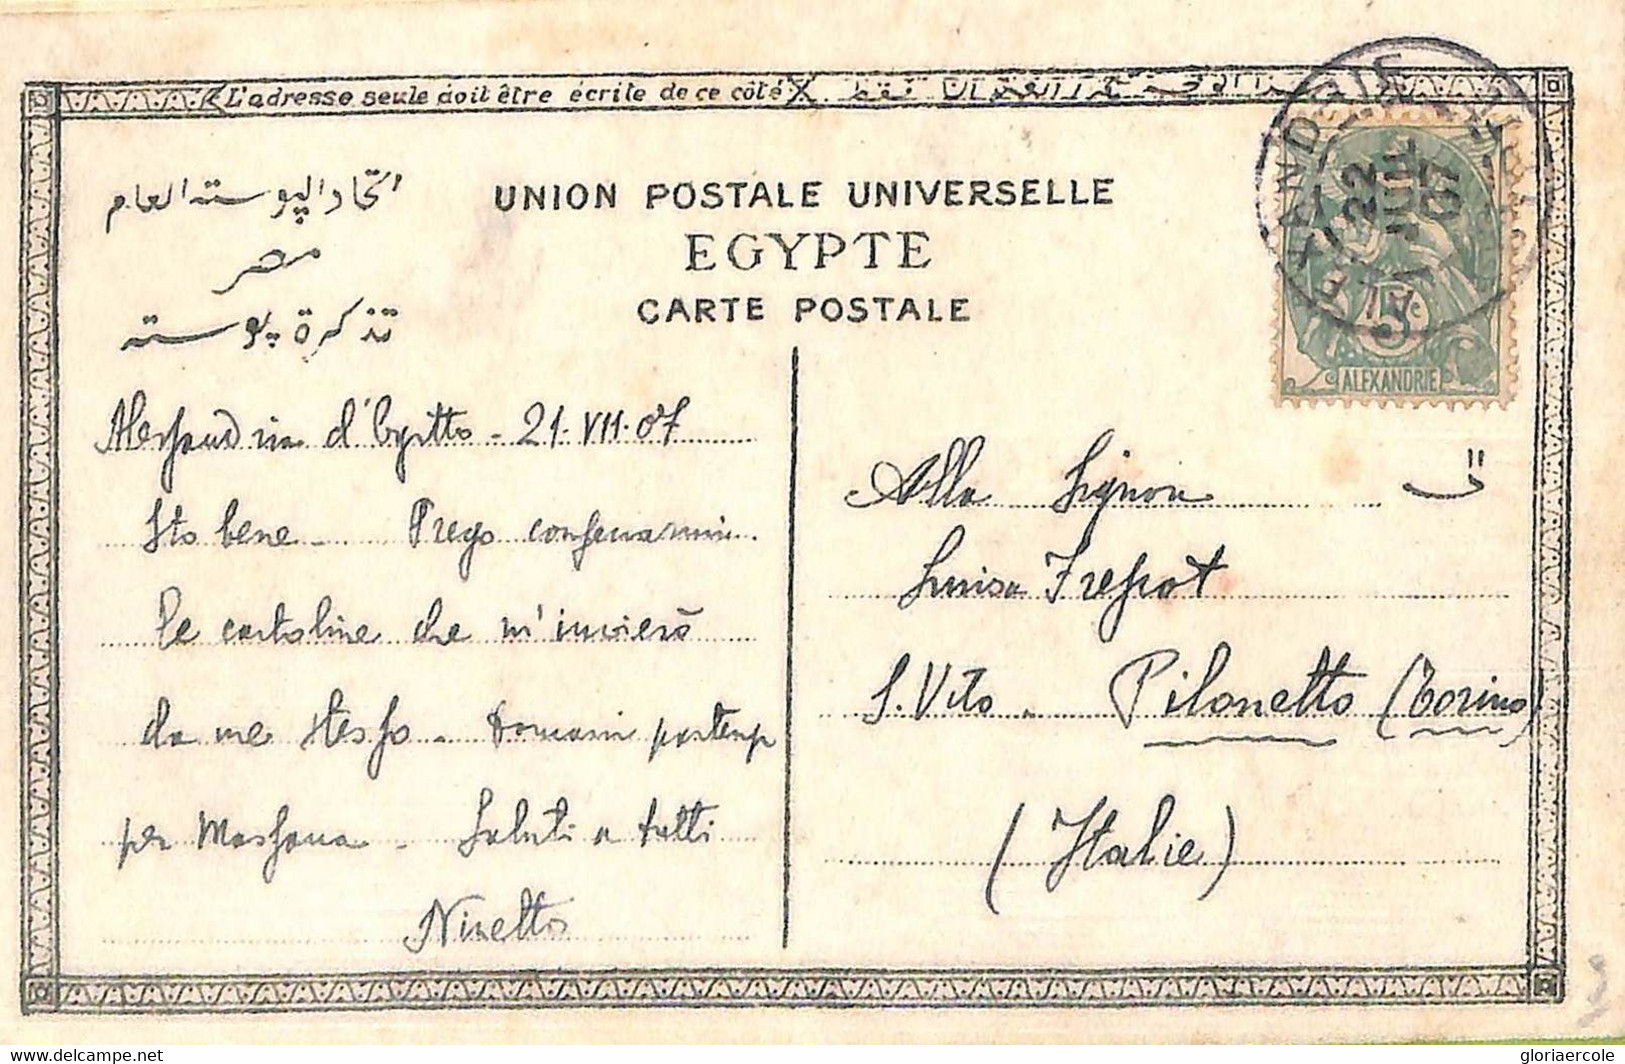 L'adresse seule doit être écrite de ce côté
اتحاد البوسته العام
مصر
تذكرة بوسته
UNION POSTALE UNIVERSELLE
EGYPTE
CARTE POSTALE
ALEXANDRIE
22
JUIL
07
5c
ALEXANDRIE
Alessandria d'Egitto - 21.VII.07
Sto bene - Prego conservarmi
le cartoline che m'invierò
da me stesso - Domani parto
per Massaua - Saluti a tutti
Ninetto
Alla Signora
Luisa
S. Vito - Pilonetto (Torino)
(Italie)
delcampe.net
gloriaercole